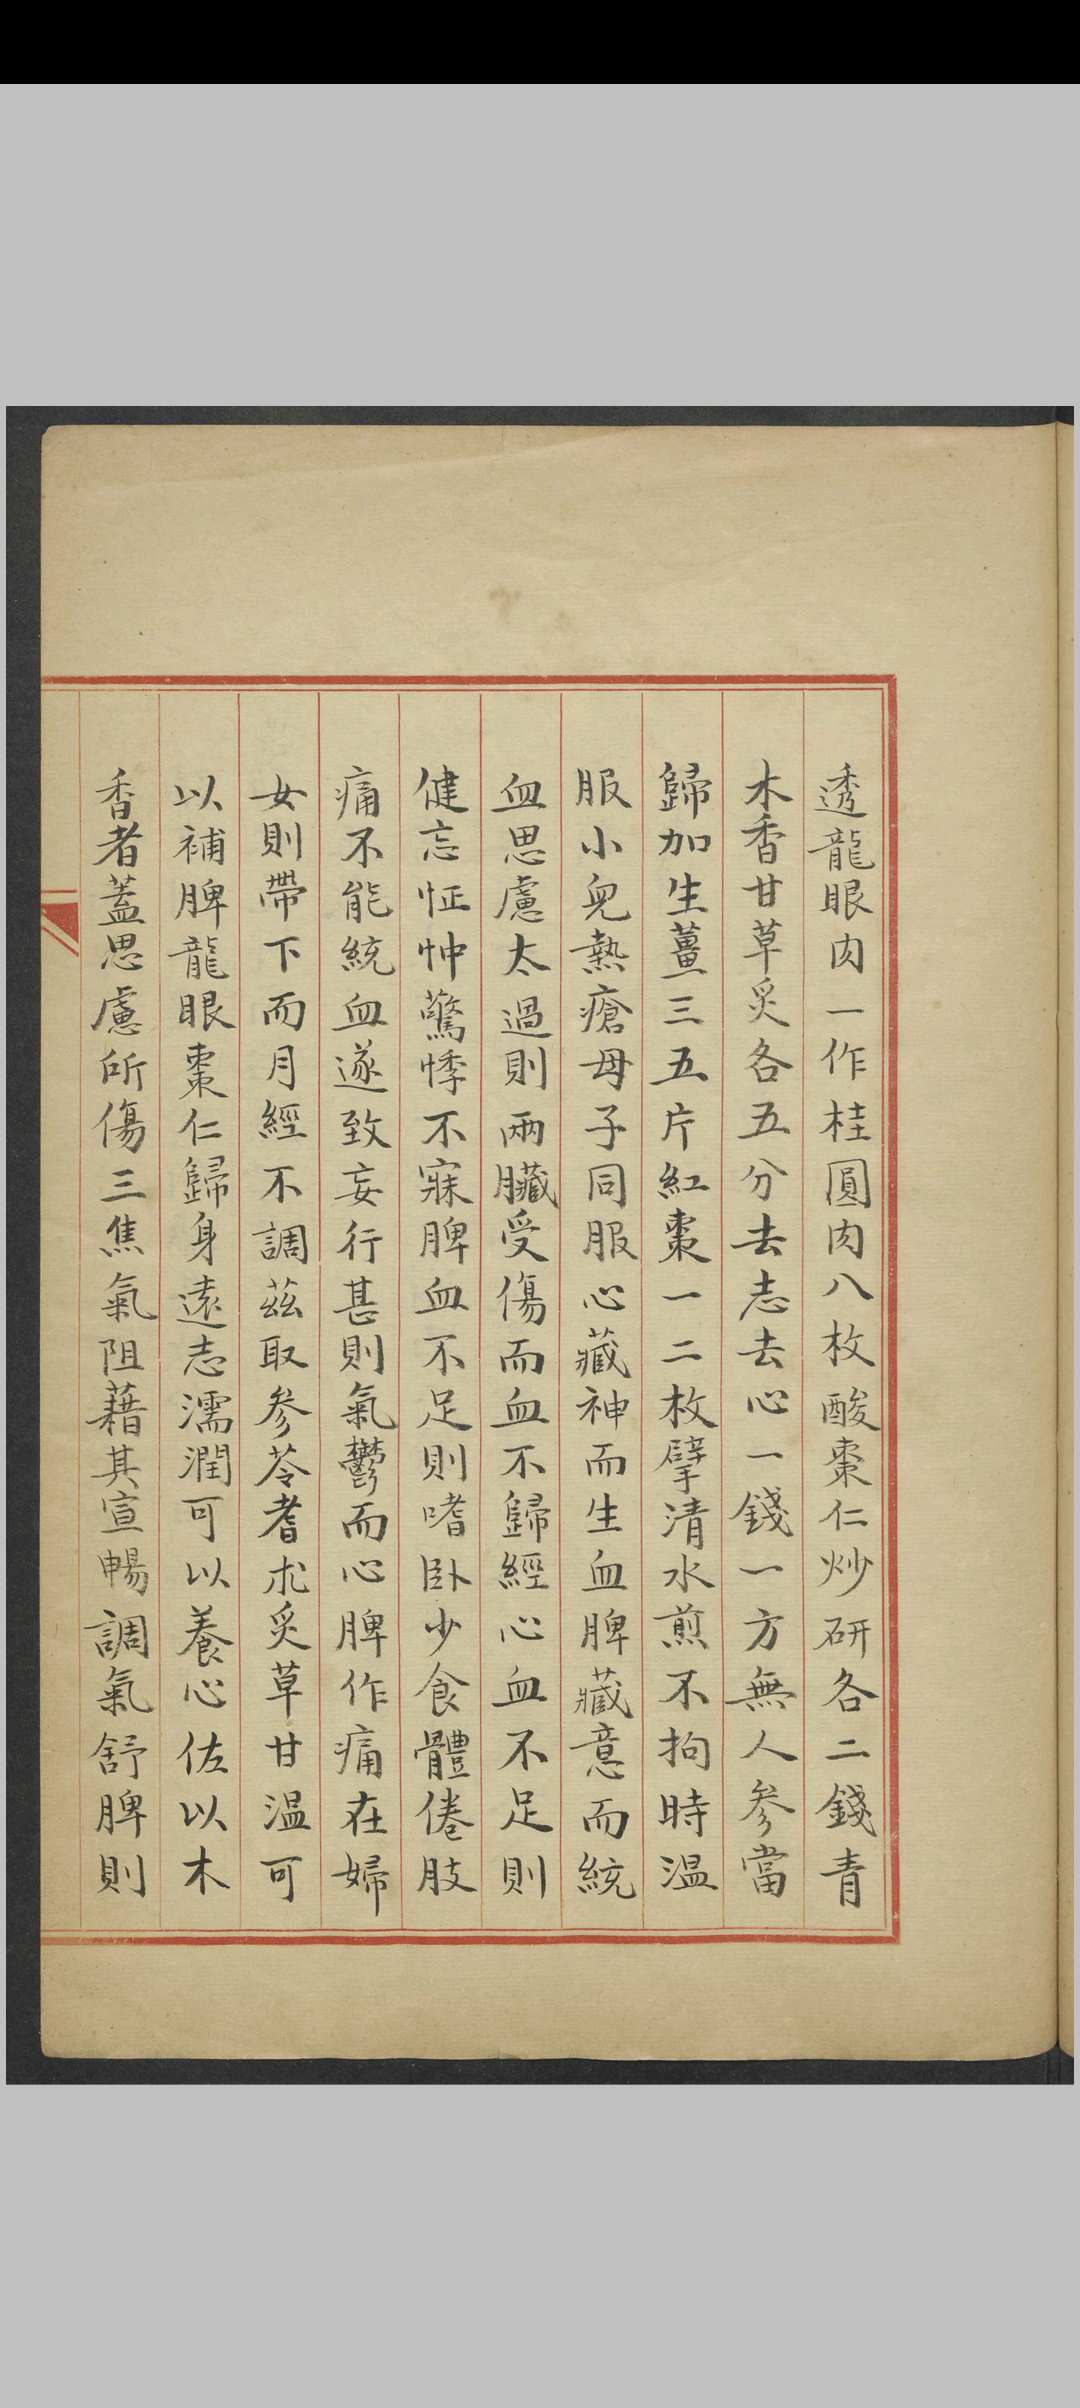 透龍眼肉一作桂圓肉八枚酸棗仁炒研各二錢青
木香甘草炙各五分去志去心一錢一方無人參當
歸加生薑三五片紅棗一二枚擘清水煎不拘時温
服小兒熱瘡母子同服心藏神而生血脾藏意而統
血思慮太過則兩臟受傷而血不歸經心血不足則
健忘怔忡驚悸不寐脾血不足則嗜卧少食體倦肢
痛不能統血遂致妄行甚則氣鬱而心脾作痛在婦
女則帶下而月經不調茲取參苓耆朮炙草甘温可
以補脾龍眼棗仁歸身遠志濡潤可以養心佐以木
香者蓋思慮所傷三焦氣阻藉其宣暢調氣舒脾則